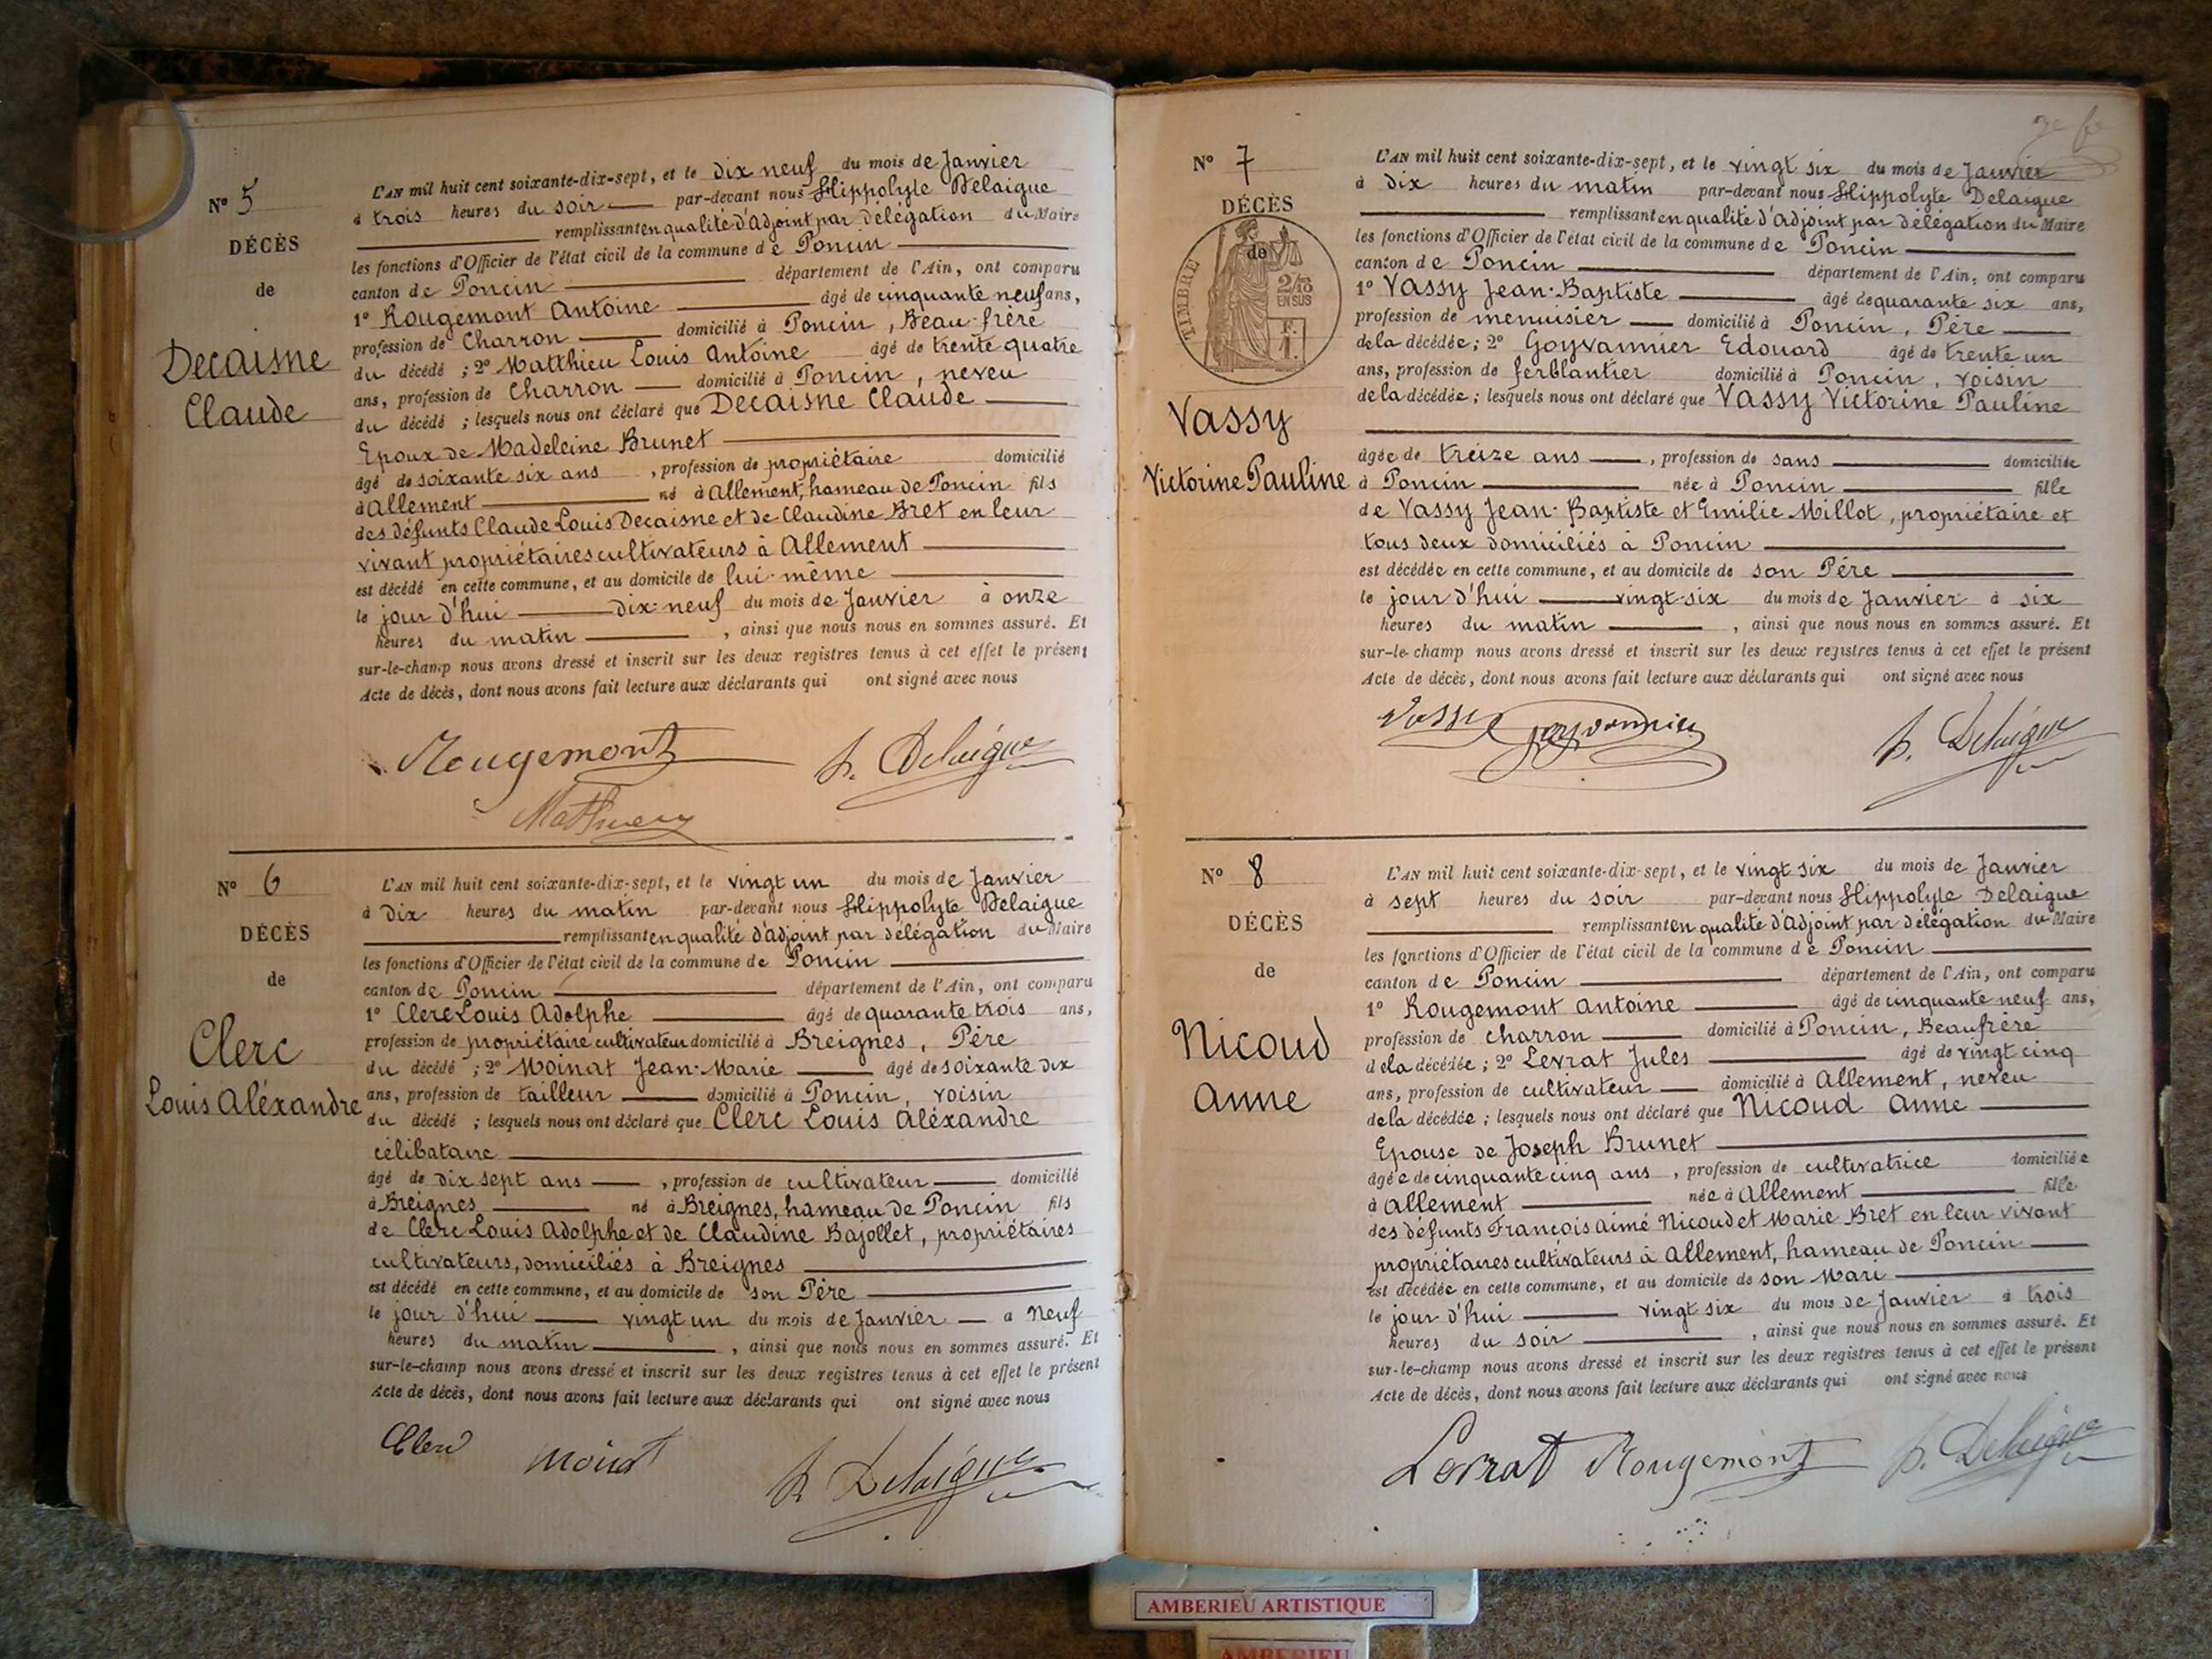 Nº 5
DÉCÈS
de
Decaisne
Claude
L'AN mil huit cent soixante-dix-sept, et le dix neuf du mois de Janvier
à trois heures du soir par-devant nous Hippolyte Delaigue
remplissant en qualité d'adjoint par délégation du Maire
les fonctions d'Officier de l'état civil de la commune de Poncin
canton de Poncin département de l'Ain, ont comparu
1º Rougemont Antoine âgé de cinquante neuf ans,
profession de Charron domicilié à Poncin, Beau-frère
du décédé ; 2º Matthieu Louis Antoine âgé de trente quatre
ans, profession de Charron domicilié à Poncin, neveu
du décédé ; lesquels nous ont déclaré que Decaisne Claude
Epoux de Madeleine Brunet
âgé de soixante six ans , profession de propriétaire domicilié
à Allement né à Allement, hameau de Poncin fils
des défunts Claude Louis Decaisne et de Claudine Bret en leur
vivant propriétaires cultivateurs à Allement
est décédé en cette commune, et au domicile de lui-même
le jour d'hui dix-neuf du mois de Janvier à onze
heures du matin , ainsi que nous nous en sommes assuré. Et
sur-le-champ nous avons dressé et inscrit sur les deux registres tenus à cet effet le présent
Acte de décès, dont nous avons fait lecture aux déclarants qui ont signé avec nous
Rougemont h. Delaigue
Mathieu
Nº 6
DÉCÈS
de
Clerc
Louis Aléxandre
L'AN mil huit cent soixante-dix-sept, et le vingt un du mois de Janvier
à dix heures du matin par-devant nous Hippolyte Delaigue
remplissant en qualité d'adjoint par délégation du Maire
les fonctions d'Officier de l'état civil de la commune de Poncin
canton de Poncin département de l'Ain, ont comparu
1º Clerc Louis Adolphe âgé de quarante trois ans,
profession de propriétaire cultivateur domicilié à Breignes, Père
du décédé ; 2º Moinat Jean-Marie âgé de soixante dix
ans, profession de tailleur domicilié à Poncin, voisin
du décédé ; lesquels nous ont déclaré que Clerc Louis Aléxandre
célibataire
âgé de dix sept ans , profession de cultivateur domicilié
à Breignes né à Breignes, hameau de Poncin fils
de Clerc Louis Adolphe et de Claudine Bajollet, propriétaires
cultivateurs, domiciliés à Breignes
est décédé en cette commune, et au domicile de son Père
le jour d'hui vingt un du mois de Janvier à Neuf
heures du matin , ainsi que nous nous en sommes assuré. Et
sur-le-champ nous avons dressé et inscrit sur les deux registres tenus à cet effet le présent
Acte de décès, dont nous avons fait lecture aux déclarants qui ont signé avec nous
Clerc Moinat h. Delaigue
Nº 7
DÉCÈS
de
TIMBRE
2/10
EN SUS
F.
1.
Vassy
Victorine Pauline
L'AN mil huit cent soixante-dix-sept, et le vingt six du mois de Janvier
à dix heures du matin par-devant nous Hippolyte Delaigue
remplissant en qualité d'adjoint par délégation du Maire
les fonctions d'Officier de l'état civil de la commune de Poncin
canton de Poncin département de l'Ain, ont comparu
1º Vassy Jean-Baptiste âgé de quarante six ans,
profession de menuisier domicilié à Poncin, Père
de la décédée ; 2º Goyvannier Edouard âgé de trente un
ans, profession de ferblantier domicilié à Poncin, voisin
de la décédée ; lesquels nous ont déclaré que Vassy Victorine Pauline
âgée de treize ans , profession de sans domiciliée
à Poncin née à Poncin fille
de Vassy Jean-Baptiste et Emilie Millot, propriétaire et
tous deux domiciliés à Poncin
est décédée en cette commune, et au domicile de son Père
le jour d'hui vingt-six du mois de Janvier à six
heures du matin , ainsi que nous nous en sommes assuré. Et
sur-le-champ nous avons dressé et inscrit sur les deux registres tenus à cet effet le présent
Acte de décès, dont nous avons fait lecture aux déclarants qui ont signé avec nous
Vassy Goyvannier h. Delaigue
Nº 8
DÉCÈS
de
Nicoud
Anne
L'AN mil huit cent soixante-dix-sept, et le vingt six du mois de Janvier
à sept heures du soir par-devant nous Hippolyte Delaigue
remplissant en qualité d'adjoint par délégation du Maire
les fonctions d'Officier de l'état civil de la commune de Poncin
canton de Poncin département de l'Ain, ont comparu
1º Rougemont Antoine âgé de cinquante neuf ans,
profession de charron domicilié à Poncin, Beaufrère
de la décédée ; 2º Levrat Jules âgé de vingt cinq
ans, profession de cultivateur domicilié à Allement, neveu
de la décédée ; lesquels nous ont déclaré que Nicoud Anne
Epouse de Joseph Brunet
âgée de cinquante cinq ans , profession de cultivatrice domiciliée
à Allement née à Allement fille
des défunts François Aimé Nicoud et Marie Bret en leur vivant
propriétaires cultivateurs à Allement, hameau de Poncin
est décédée en cette commune, et au domicile de son Mari
le jour d'hui vingt six du mois de Janvier à trois
heures du soir , ainsi que nous nous en sommes assuré. Et
sur-le-champ nous avons dressé et inscrit sur les deux registres tenus à cet effet le présent
Acte de décès, dont nous avons fait lecture aux déclarants qui ont signé avec nous
Levrat Rougemont h. Delaigue
AMBERIEU ARTISTIQUE
AMBERIEU